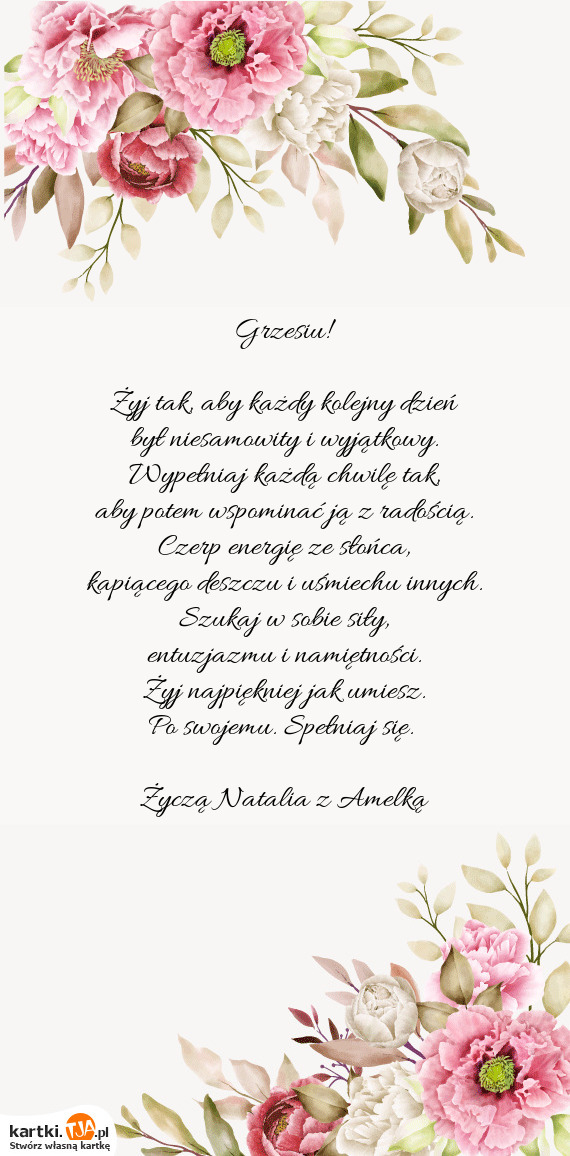 Grzesiu!
Żyj tak, aby każdy kolejny dzień
był niesamowity i wyjątkowy.
Wypełniaj każdą chwilę tak,
aby potem wspominać ją z radością.
Czerp energię ze słońca,
kapiącego deszczu i uśmiechu innych.
Szukaj w sobie siły,
entuzjazmu i namiętności.
Żyj najpiękniej jak umiesz.
Po swojemu. Spełniaj się.
Życzą Natalia z Amelką
kartki.TJA.pl
Stwórz własną kartkę